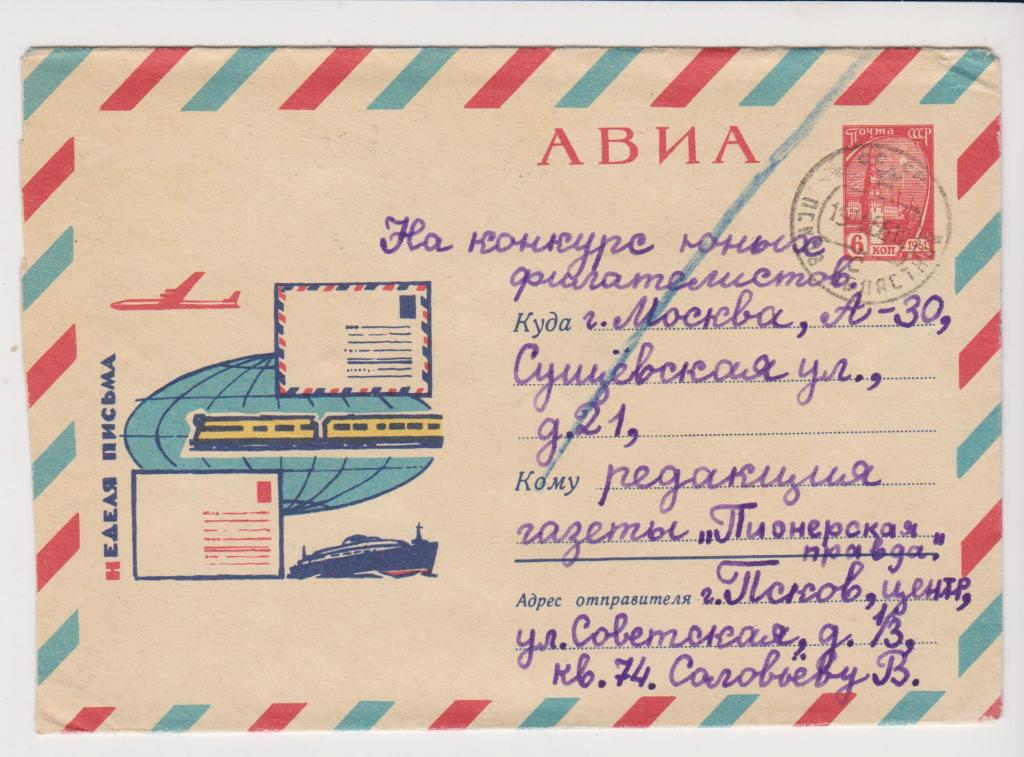 АВИА
Почта СССР
6 коп 1961
ПСКОВ ОБЛАСТНОЙ
На конкурс юных
филателистов
Куда г. Москва, А-30,
Сущёвская ул.,
д. 21,
Кому редакция
газеты „Пионерская
правда."
Адрес отправителя г. Псков, центр,
ул. Советская, д.
кв. 74. Соловьёву В.
НЕДЕЛЯ ПИСЬМА